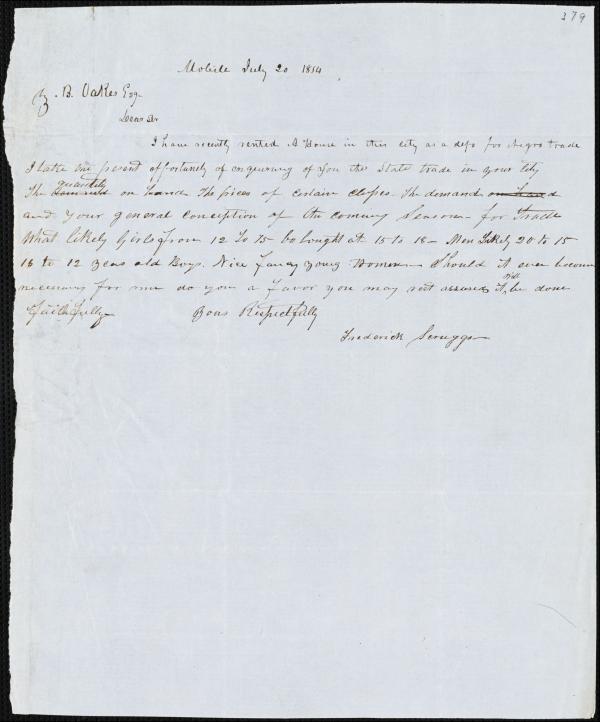 379
Mobile July 20 1854
Z. B. Oakes Esq
Dear Sir
I have recently rented A House in this city as a depo for Negro trade
I take the present opportunity of enquireing of you the State trade in your City
The quantity on hand The prices of certain classes. The demand on hand
and your general conception of the comeing Season for Trade
What likely Girls from 12 to 15 be bought at 15 to 18 – Men likely 20 to 25
18 to 12 years old Boys. Nice Fancy young Women Should it ever become
necessary for me do you a favor you may rest assured it will be done
Faithfully Yours Respectfully
Frederick Scruggs